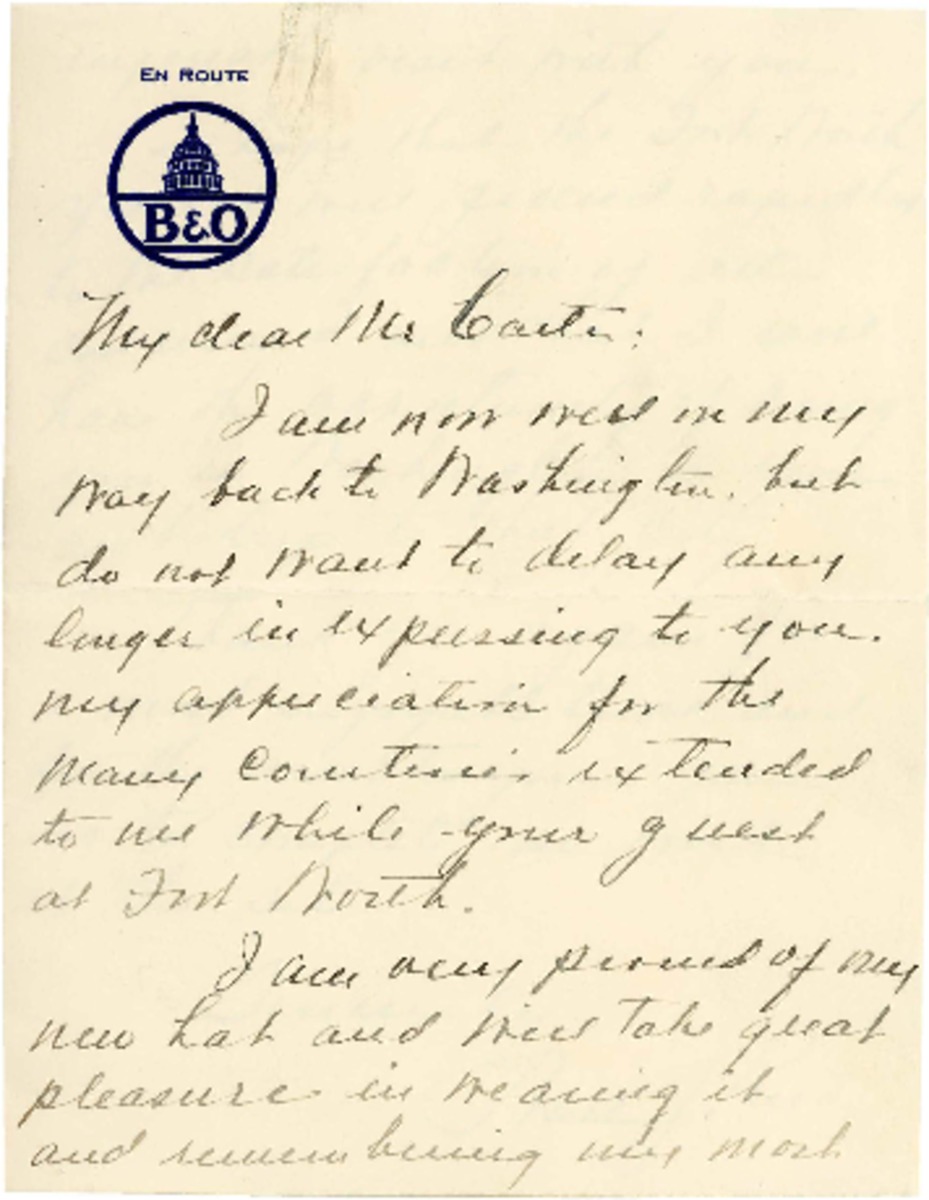 EN ROUTE
B&O
My dear Mr Carter:
I am now well on my
way back to Washington, but
do not want to delay any
longer in expressing to you
my appreciation for the
many courtesies extended
to me while your guest
at Fort Worth.
I am very proud of my
new hat and will take great
pleasure in wearing it
and remembering my most